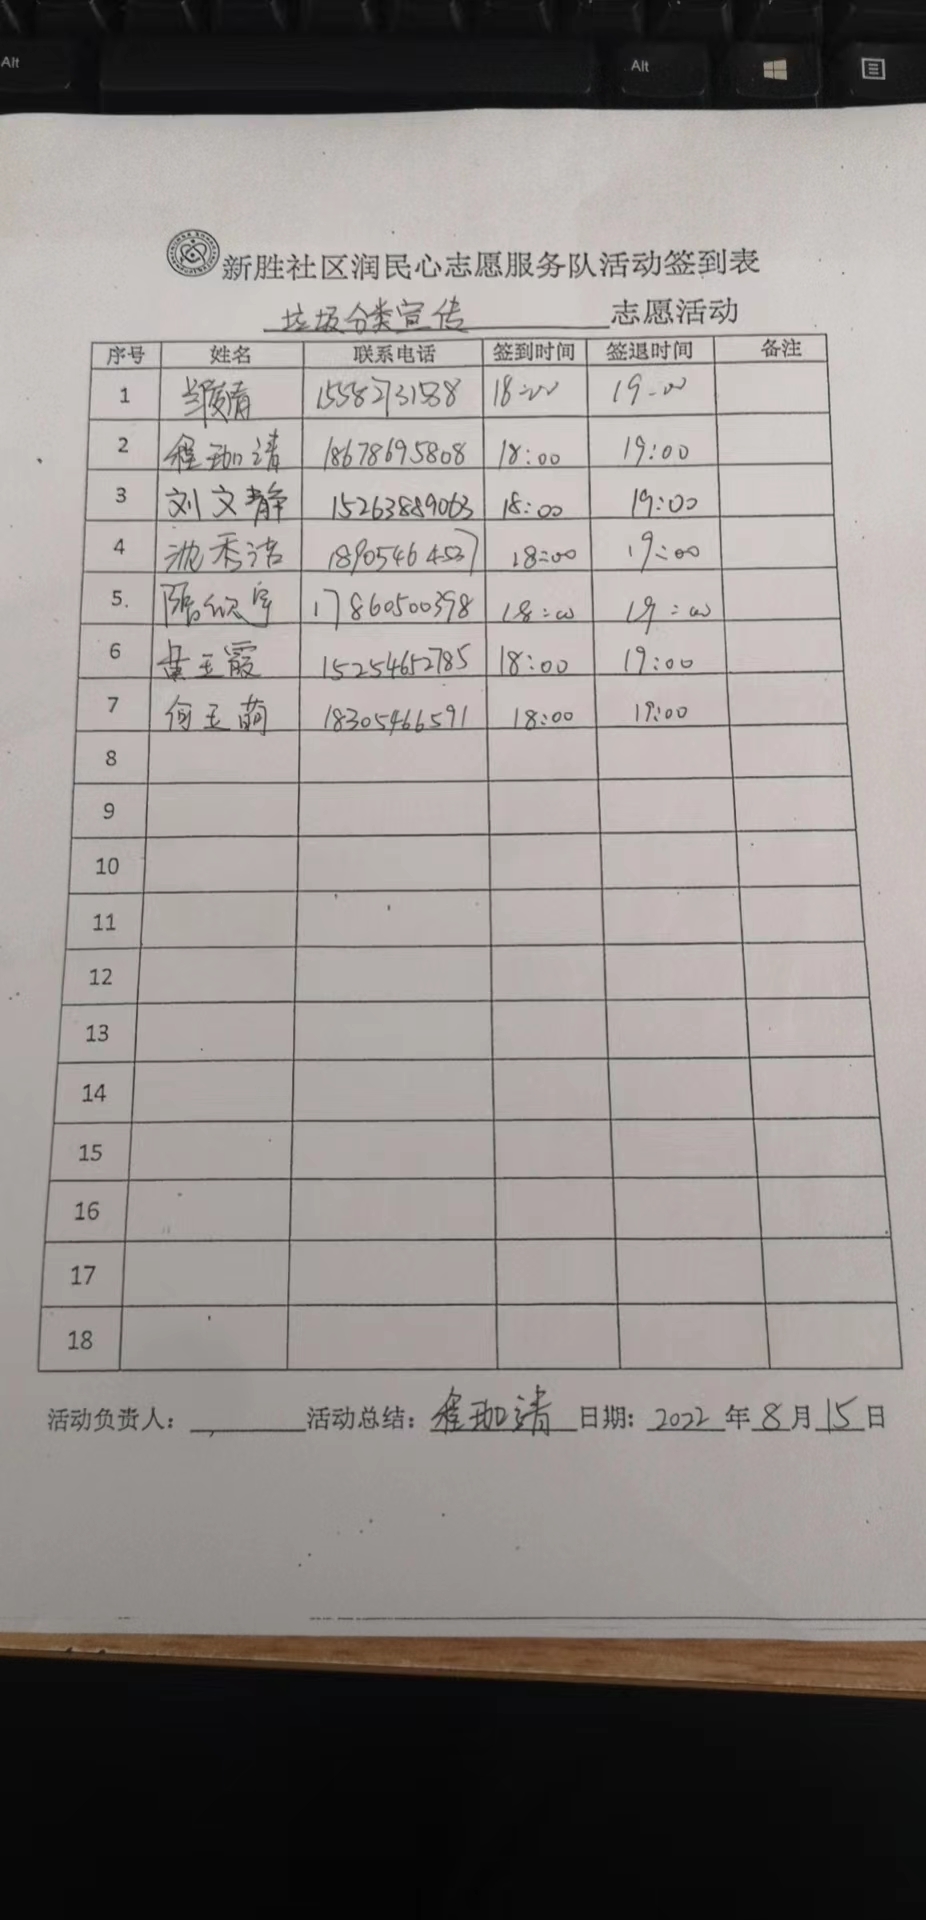 Alt Alt
新胜社区润民心志愿服务队活动签到表
垃圾分类宣传 志愿活动
序号 姓名 联系电话 签到时间 签退时间 备注
1 18:00 19:00
2 程珈靖 18678695808 18:00 19:00
3 刘文静 15263889063 18:00 19:00
4 沈秀洁 18905464537 18:00 19:00
5. 17860500398 18:00 19:00
6 黄玉霞 15254652785 18:00 19:00
7 何玉萌 18305466591 18:00 19:00
8
9
10
11
12
13
14
15
16
17
18
活动负责人: 活动总结: 程珈靖 日期: 2022 年 8 月 15 日